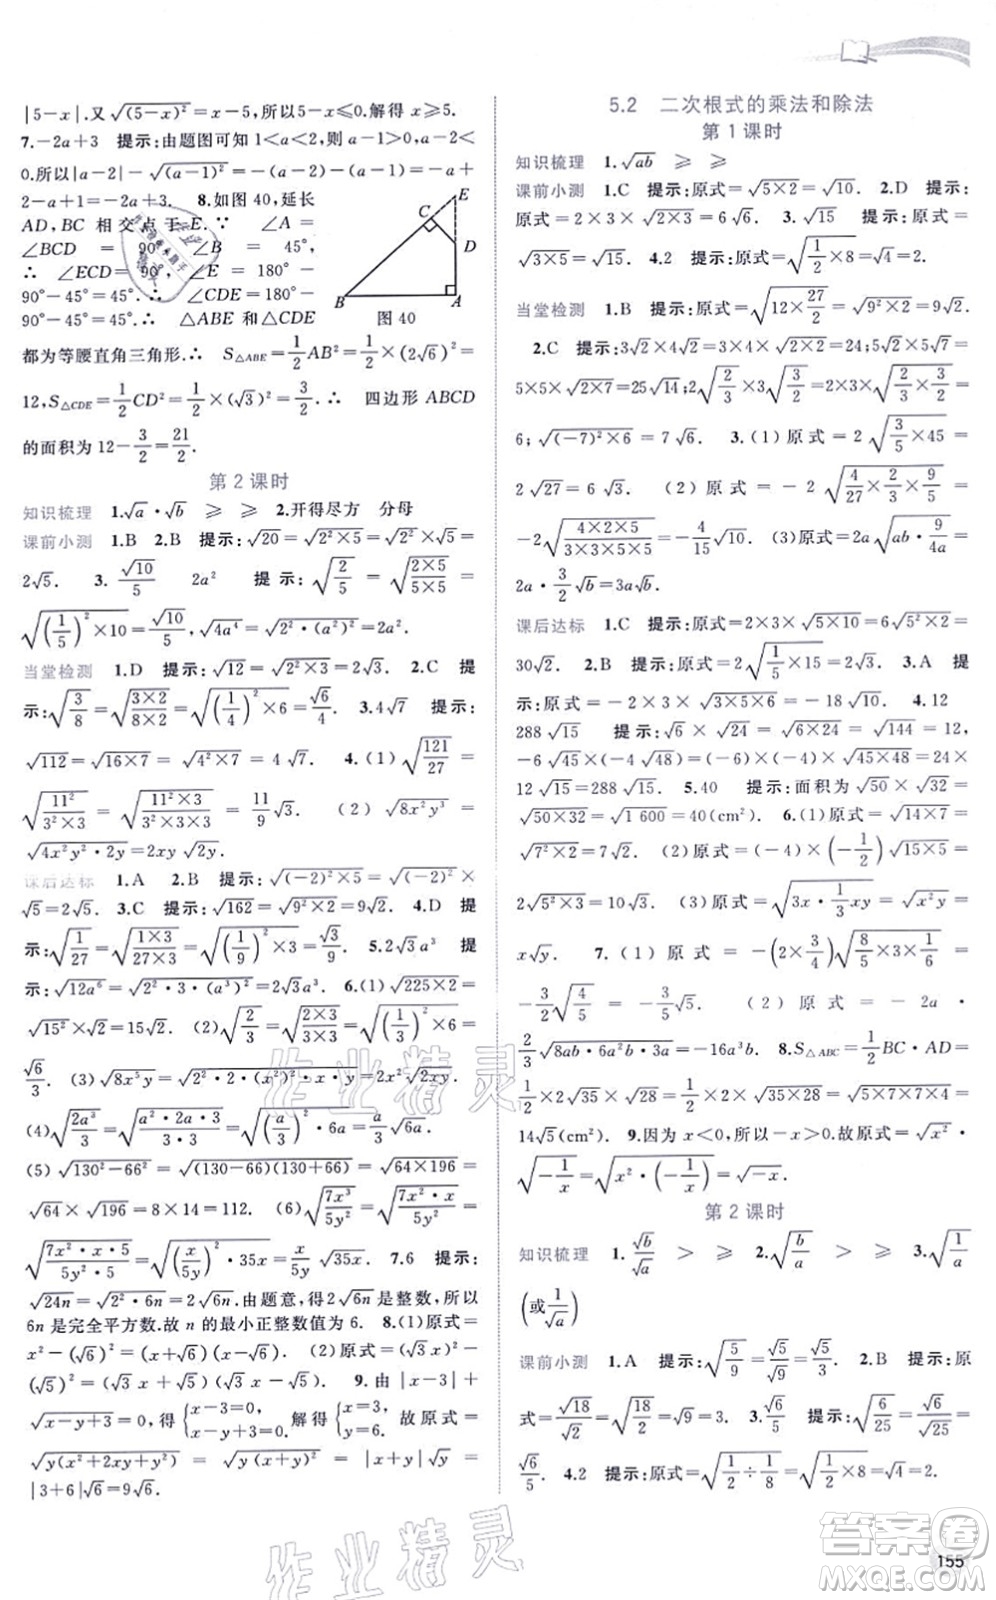 |5-x|.又√(5-x)²=x-5,所以5-x≤0.解得x≥5.
7.-2a+3 提示:由题图可知1<a<2,则1-a<0,a-2<
0.所以|a-2|-√(a-1)²=-(a-2)-(a-1)=-a+
2-a+1=-2a+3. 8.如图40,延长
AD,BC相交点于E.∵ ∠A=
∠BCD = 90°,∠B = 45°,
∴ ∠ECD=90°,∠E=180°-
90°-45°=45°.∠CDE=180°-
90°-45°=45°.∴ △ABE和△CDE
E
C
D
B
A
图40
都为等腰直角三角形.∴ S△ABE=1/2AB²=1/2×(2√6)²=
12,S△CDE=1/2CD²=1/2×(√3)²=3/2.∴ 四边形ABCD
的面积为12-3/2=21/2.
第2课时
知识梳理 1.√a·√b ≥ ≥ 2.开得尽方 分母
课前小测 1.B 2.B 提示:√20=√2²×5=√2²×√5=
2√5. 3.√10/5 2a² 提示:√(2/5)=√(2×5/5×5)=
√((1/5)²×10)=√10/5,√4a⁴=√2²·(a²)²=2a².
当堂检测 1.D 提示:√12=√2²×3=2√3. 2.C 提
示:√(3/8)=√(3×2/8×2)=√((1/4)²×6)=√6/4. 3.4√7 提示:
√112=√16×7=√4²×7=4√7. 4.(1)√(121/27)=
√(11²/3²×3)=√(11²×3/3²×3×3)=11/9√3. (2)√8x²y³=
√4x²y²·2y=2xy√2y.
课后达标 1.A 2.B 提示:√(-2)²×5=√(-2)²×
√5=2√5. 3.C 提示:√162=√9²×2=9√2. 4.D 提
示:√(1/27)=√(1×3/27×3)=√((1/9)²×3)=√3/9. 5.2√3a³ 提
示:√12a⁶=√2²·3·(a³)²=2√3a³. 6.(1)√225×2=
√15²×√2=15√2. (2)√(2/3)=√(2×3/3×3)=√((1/3)²×6)=
√6/3. (3)√8x⁵y=√2²·2·(x²)²·xy=2x²√2xy.
(4)√(2a³/3)=√(a²·2a·3/3·3)=√((a/3)²·6a)=a/3√6a.
(5)√130²-66²=√(130-66)(130+66)=√64×196=
√64×√196=8×14=112. (6)√(7x³/5y)=√(7x²·x/5y)=
√(7x²·x·5y/5y²·5y)=√((x/5y)²·35xy)=x/5y√35xy. 7.6 提示:
√24n=√2²·6n=2√6n.由题意,得2√6n是整数,所以
6n是完全平方数.故n的最小正整数值为6. 8.(1)原式=
x²-(√6)²=(x+√6)(x-√6). (2)原式=(√3x)²-
(√5)²=(√3x+√5)(√3x-√5). 9.由|x-3|+
√x-y+3=0,得{x-3=0, x-y+3=0. 解得{x=3, y=6. 故原式=
√y(x²+2xy+y²)=√y(x+y)²=|x+y|√y=
|3+6|√6=9√6.
5.2 二次根式的乘法和除法
第1课时
知识梳理 1.√ab ≥ ≥
课前小测 1.C 提示:原式=√5×2=√10. 2.D 提示:
原式=2×3×√2×3=6√6. 3.√15 提示:原式=
√3×5=√15. 4.2 提示:原式=√(1/2×8)=√4=2.
当堂检测 1.B 提示:原式=√(12×27/2)=√9²×2=9√2.
2.C 提示:3√2×4√2=3×4×√2×2=24;5√2×5√7=
5×5×√2×7=25√14;2√(2/3)×3√(3/2)=2×3×√(2/3×3/2)=
6;√(-7)²×6=7√6. 3.(1)原式=2√(3/5×45)=
2√27=6√3. (2)原式=-2√(4/27×2/3×9/5)=
-2√(4×2×5/3×3×5×5)=-4/15√10. (3)原式=2a√(ab·9/4a)=
2a·3/2√b=3a√b.
课后达标 1.C 提示:原式=2×3×√5×10=6√5²×2=
30√2. 2.B 提示:原式=2√(1/5×15)=2√3. 3.A 提
示:原式=-2×3×√3×5×6=-18√10. 4.12
288√15 提示:√6×√24=√6×24=√144=12,
-6√45×(-4√48)=-6×(-4)×√45×48=24×
12√15=288√15. 5.40 提示:面积为√50×√32=
√50×32=√1600=40(cm²). 6.(1)原式=√14×7=
√7²×2=7√2. (2)原式=-4×(-1/2)×√15×5=
2√5²×3=10√3. (3)原式=√(3x·1/3xy)=√x²y=
x√y. 7.(1)原式=-(2×3/4)√(8/5×3×1/6)=
-3/2√(4/5)=-3/5√5. (2)原式=-2a·
1/4√8ab·6a²b·3a=-16a³b. 8.S△ABC=1/2BC·AD=
1/2×2√28×√35=√28×35=√5×7×7×4=
14√5(cm²). 9.因为x<0,所以-x>0.故原式=√x²·
√(-1/x)=√(x²·(-1/x))=√-x.
第2课时
知识梳理 1.√b/√a > ≥ 2.√(b/a) > ≥ 3.√(1/a)
(或1/√a)
课前小测 1.A 提示:√(5/9)=√5/√9=√5/3. 2.B 提示:原
式=√18/√2=√(18/2)=√9=3. 3.√6/5 提示:√(6/25)=√6/√25=
√6/5. 4.2 提示:原式=√(1/2÷1/8)=√(1/2×8)=√4=2.
作业精灵
作业精灵
答案卷
MXQE.COM
155